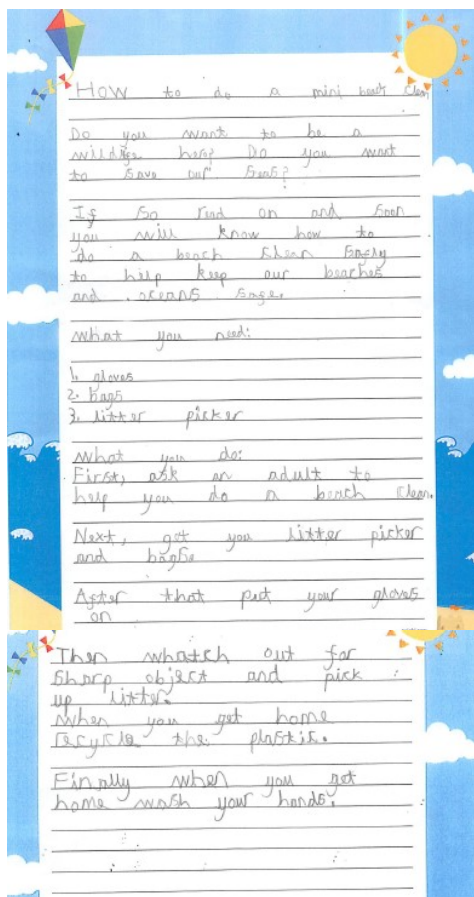 How to do a mini beach clean
Do you want to be a
wildlife hero? Do you want
to save our seas?
If so read on and soon
you will know how to
do a beach clean safly
to help keep our beaches
and oceans safe.
What you need:
1. gloves
2. bags
3. litter picker
What you do:
First, ask an adult to
help you do a beach clean.
Next, get you litter picker
and
After that put your gloves
on
Then whatch out for
sharp object and pick
up litter.
When you get home
recycle the plastic.
Finally when you get
home wash your hands.